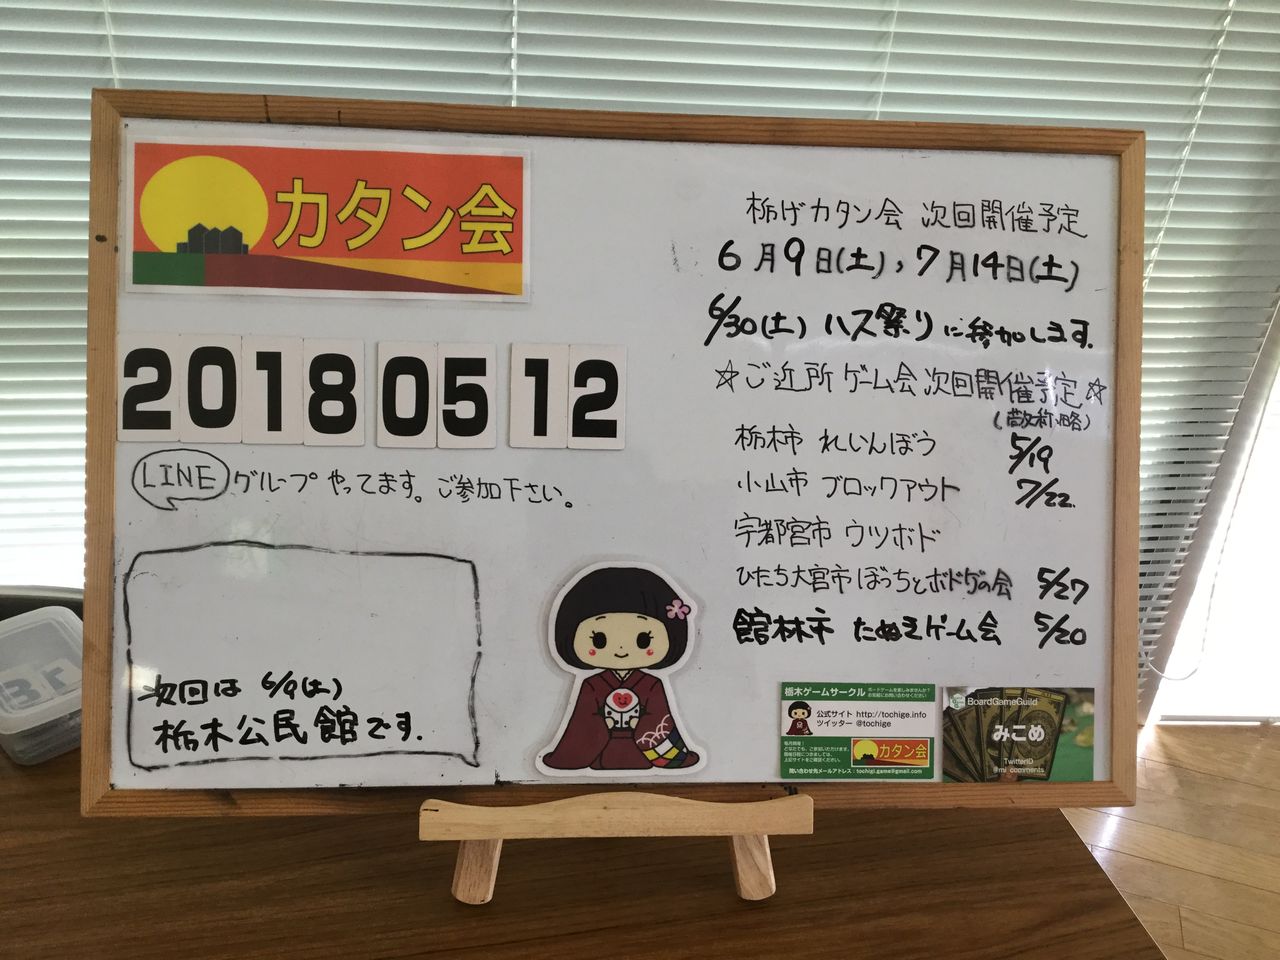 カタン会
20180512
LINE グループやってます。ご参加下さい。
次回は 6/9(土)
栃木公民館です.
栃げカタン会 次回開催予定
6月9日(土),7月14日(土)
6/30(土) ハス祭りに参加します.
☆ご近所ゲーム会次回開催予定☆
(敬称略)
栃木市 れいんぼう 5/19
小山市 ブロックアウト 7/22.
宇都宮市 ウツボド
ひたち大宮市 ぼっちとボドゲの会 5/27
館林市 たぬえゲーム会 5/20
栃木ゲームサークル
ボードゲームを楽しみませんか?
お気軽にお問い合わせください
公式サイト http://tochige.info
ツイッター @tochige
毎月開催!
どなたでも、ご参加いただけます。
開催日程につきましては、
上記サイトをご確認ください。
カタン会
問い合わせ先メールアドレス:tochigi.game@gmail.com
BoardGameGuild
みこめ
TwitterID
@mi_comments